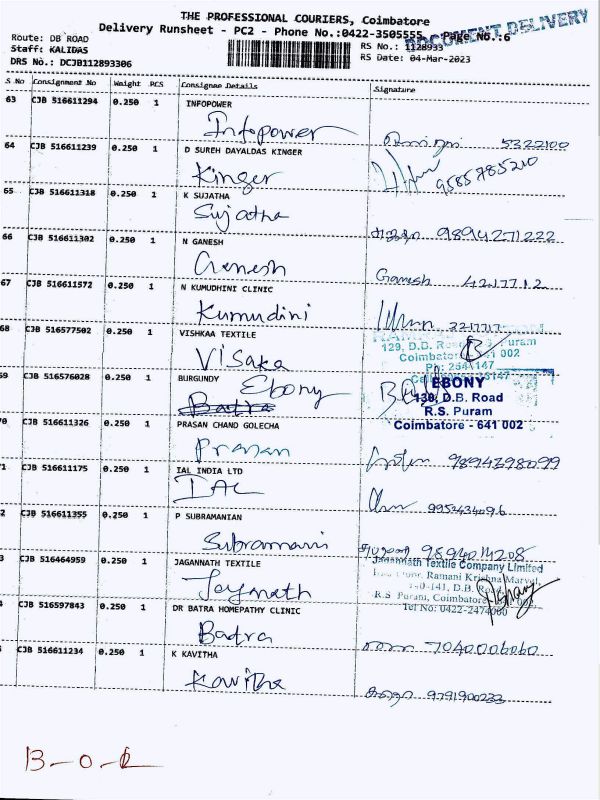 THE PROFESSIONAL COURIERS, Coimbatore
Delivery Runsheet - PC2 - Phone No.:0422-3505555 Page No.:6
DOCUMENT DELIVERY
Route: DB ROAD
Staff: KALIDAS
DRS No.: DCJB112893306
RS No.: 1128933
RS Date: 04-Mar-2023
S No Consignment No Weight PCS Consignee Details Signature
63 CJB 516611294 0.250 1 INFOPOWER
Infopower 5322100
64 CJB 516611239 0.250 1 D SUREH DAYALDAS KINGER
Kinger 9585785210
65 CJB 516611318 0.250 1 K SUJATHA
Sujatha 9894271222
66 CJB 516611302 0.250 1 N GANESH
Ganesh Ganesh 4217712
67 CJB 516611572 0.250 1 N KUMUDHINI CLINIC
Kumudini 2217717
68 CJB 516577502 0.250 1 VISHKAA TEXTILE
Visaka
129, D.B. Road, R.S. Puram
Coimbatore - 641 002
69 CJB 516576028 0.250 1 BURGUNDY
Ebony
Batra
EBONY
130, D.B. Road
R.S. Puram
Coimbatore - 641 002
70 CJB 516611326 0.250 1 PRASAN CHAND GOLECHA
Prasan 9894398099
71 CJB 516611175 0.250 1 IAL INDIA LTD
IAL
72 CJB 516611355 0.250 1 P SUBRAMANIAN
Subramani
73 CJB 516464959 0.250 1 JAGANNATH TEXTILE
Jaganath
Jagannath Textile Company Limited
Ramani Krishna Marvel,
140-141, D.B. Road,
R.S Puram, Coimbatore - 641 002,
Tel No: 0422-2474000
74 CJB 516597843 0.250 1 DR BATRA HOMEPATHY CLINIC
Batra 7040006060
75 CJB 516611234 0.250 1 K KAVITHA
Kavitha 9791900233
B-O-R